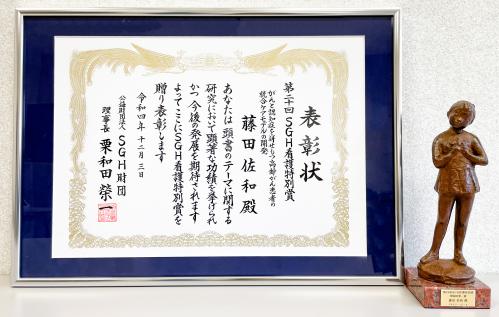 表彰状
第二十回 SGH看護特別賞
がんと認知症を併せもつ高齢がん患者の
統合ケアモデルの開発
藤田佐和殿
あなたは 頭書のテーマに関する
研究において顕著な功績を挙げられ
かつ 今後の発展を期待されます
よってここにSGH看護特別賞を
贈り表彰します
令和四年 十二月 三日
公益財団法人 SGH財団
理事長 栗和田 榮一